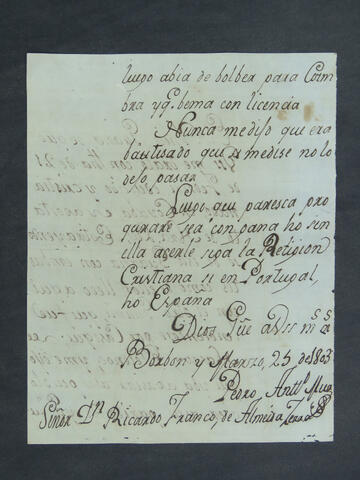 luego abia de bolber para Coim
bra y qe. bema con licencia
Nunca mediso que era
bautisado que a medise no lo
deso pasar
Luego que paresca pro
qurare sea con pana ho sen
ella aserle siga la Religion
Cristiana si en Portugal,
ho España
Dios Gûe a Vss m a
Borbon y Marszo, 25 de 1803
Pedro Antto.
Señor Dn Ricardo Franco, de Almeida Serra